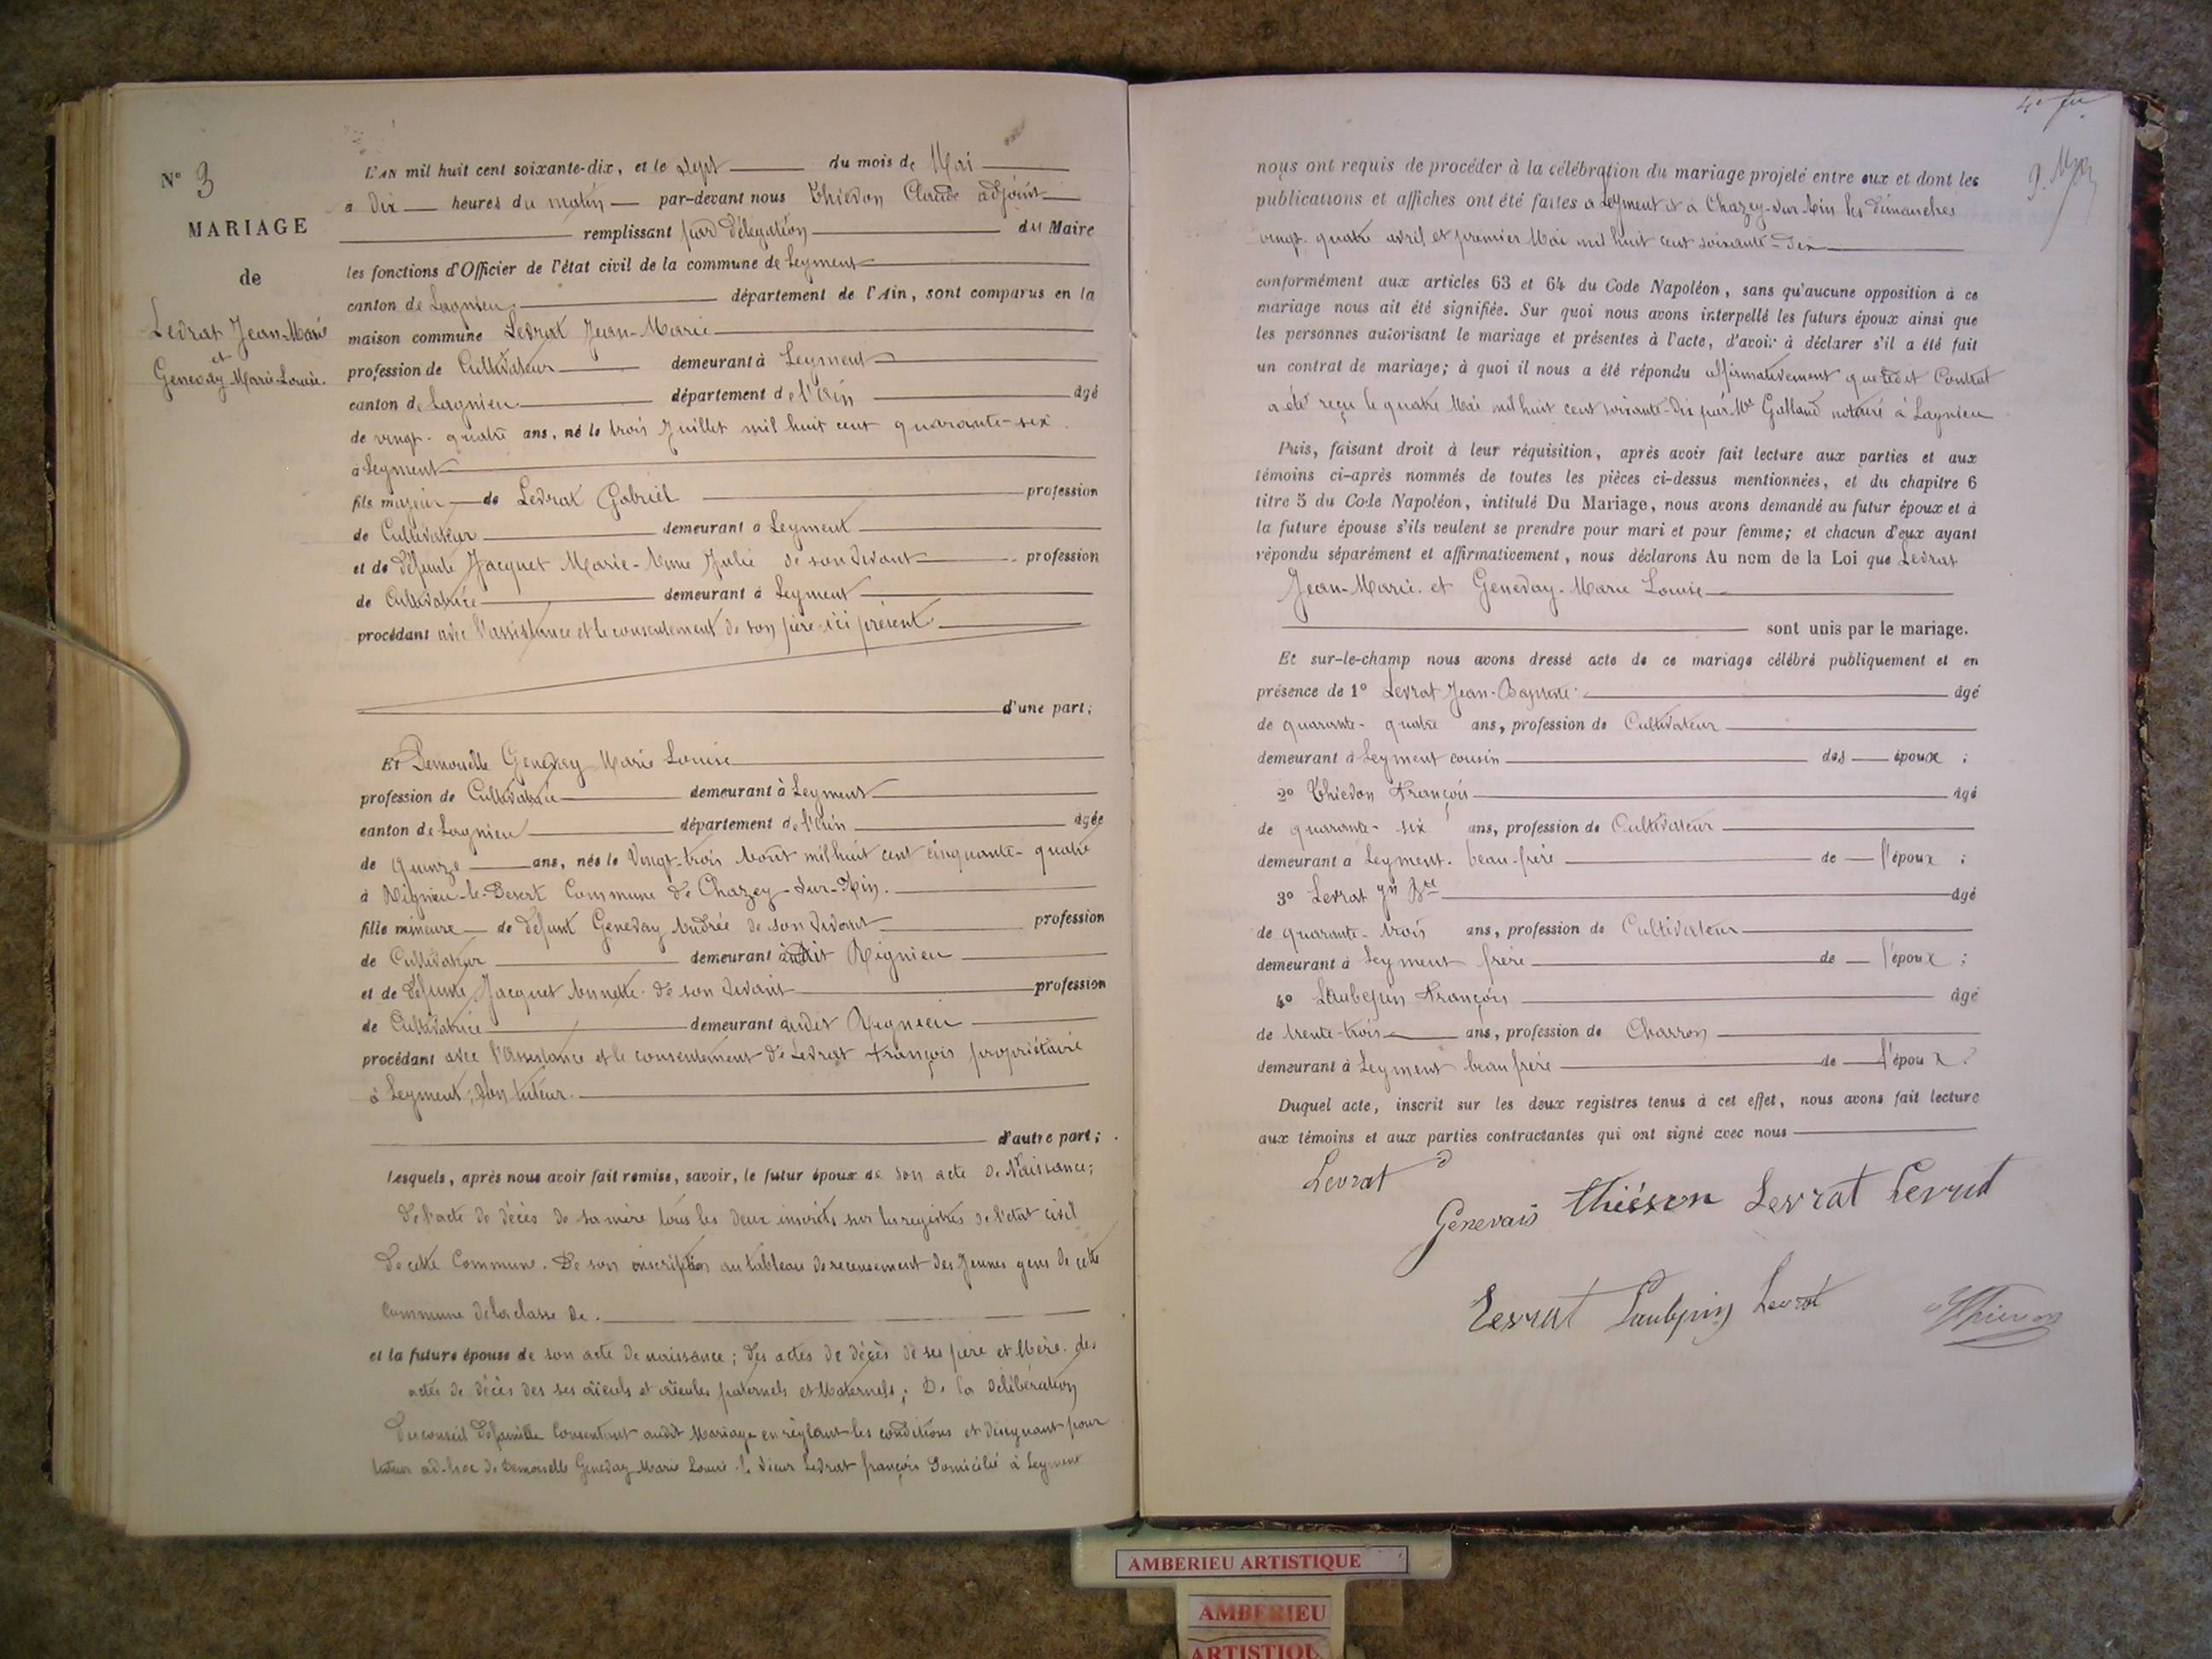 N° 3
MARIAGE
de
Levrat Jean-Marie
et
Genevay Marie-Louise.
L'AN mil huit cent soixante-dix, et le sept du mois de Mai
a dix heures du matin par-devant nous Thievon Claude adjoint
remplissant par délégation du Maire
les fonctions d'Officier de l'état civil de la commune de Leyment
canton de Lagnieu département de l'Ain, sont comparus en la
maison commune Levrat Jean-Marie
profession de Cultivateur demeurant à Leyment
canton de Lagnieu département de l'Ain âgé
de vingt-quatre ans, né le trois Juillet mil huit cent quarante-six
à Leyment
fils majeur de Levrat Gabriel profession
de Cultivateur demeurant a Leyment
et de défunte Jacquet Marie-Anne Julie de son vivant profession
de Cultivatrice demeurant à Leyment
procédant avec l'assistance et le consentement de son père ici présent
d'une part;
Et Demoiselle Genevay Marie Louise
profession de Cultivatrice demeurant à Leyment
canton de Lagnieu département de l'Ain âgée
de quinze ans, née le vingt-trois Aout mil huit cent cinquante-quatre
à Rignieu-le-Desert Commune de Chazey-sur-Ain.
fille mineure de défunt Genevay André de son vivant profession
de Cultivateur demeurant audit Rignieu
et de défunte Jacquet Annette de son vivant profession
de Cultivatrice demeurant audit Rignieu
procédant avec l'assistance et le consentement de Levrat François propriétaire
à Leyment, son tuteur.
d'autre part;
Lesquels, après nous avoir fait remise, savoir, le futur époux de son acte de Naissance;
de l'acte de décès de sa mère tous les deux inscrits sur les registres de l'état civil
de cette Commune. De son inscription au tableau de recensement des jeunes gens de cette
Commune de la classe de.
et la future épouse de son acte de naissance; des actes de décès de ses père et Mère. des
actes de décès des ses aïeuls et aïeules paternels et Maternels; De la délibération
du conseil de famille consentant audit Mariage en réglant les conditions et désignant pour
tuteur ad-hoc de Demoiselle Genevay Marie Louise le sieur Levrat françois domicilié à Leyment
nous ont requis de procéder à la célébration du mariage projeté entre eux et dont les
publications et affiches ont été faites a Leyment et à Chazey-sur-Ain les dimanches
vingt-quatre avril et premier Mai mil huit cent soixante-dix
conformément aux articles 63 et 64 du Code Napoléon, sans qu'aucune opposition à ce
mariage nous ait été signifiée. Sur quoi nous avons interpellé les futurs époux ainsi que
les personnes autorisant le mariage et présentes à l'acte, d'avoir à déclarer s'il a été fait
un contrat de mariage; à quoi il nous a été répondu affirmativement que ledit Contrat
a été reçu le quatre Mai mil huit cent soixante-dix par Me Galland notaire à Lagnieu
Puis, faisant droit à leur réquisition, après avoir fait lecture aux parties et aux
témoins ci-après nommés de toutes les pièces ci-dessus mentionnées, et du chapitre 6
titre 5 du Code Napoléon, intitulé Du Mariage, nous avons demandé au futur époux et à
la future épouse s'ils veulent se prendre pour mari et pour femme; et chacun d'eux ayant
répondu séparément et affirmativement, nous déclarons Au nom de la Loi que Levrat
Jean-Marie et Genevay-Marie Louise
sont unis par le mariage.
Et sur-le-champ nous avons dressé acte de ce mariage célébré publiquement et en
présence de 1° Levrat Jean-Baptiste âgé
de quarante-quatre ans, profession de Cultivateur
demeurant à Leyment cousin des époux ;
2° Thievon François âgé
de quarante-six ans, profession de Cultivateur
demeurant a Leyment. beau-frère de l'époux ;
3° Levrat Jn Bte âgé
de quarante-trois ans, profession de Cultivateur
demeurant à Leyment frère de l'époux ;
4° Laubepin François âgé
de trente-trois ans, profession de Charron
demeurant à Leyment beau frère de l'époux
Duquel acte, inscrit sur les deux registres tenus à cet effet, nous avons fait lecture
aux témoins et aux parties contractantes qui ont signé avec nous
Levrat
Genevais Thiévon Levrat Levrat
Levrat Laubepin Levrat Thievon
AMBERIEU ARTISTIQUE
AMBERIEU
ARTISTIQU